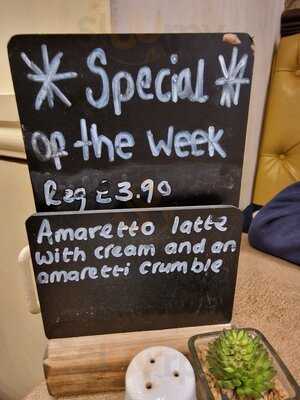 * Special *
of the week
Reg £3.90
Amaretto latte
with cream and an
amaretti crumble